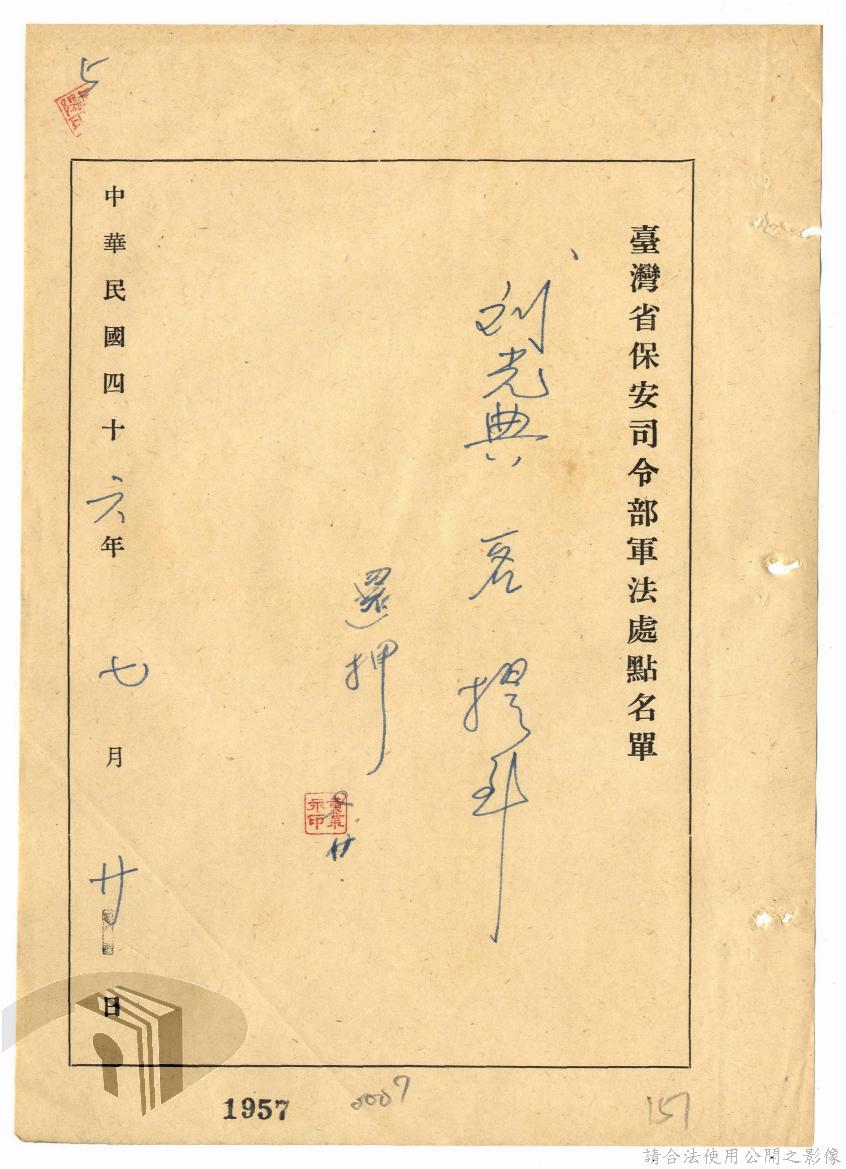 臺灣省保安司令部軍法處點名單
劉光典
提到
還押
中華民國四十六年七月廿日
5
1957
0007
157
請合法使用公開之影像